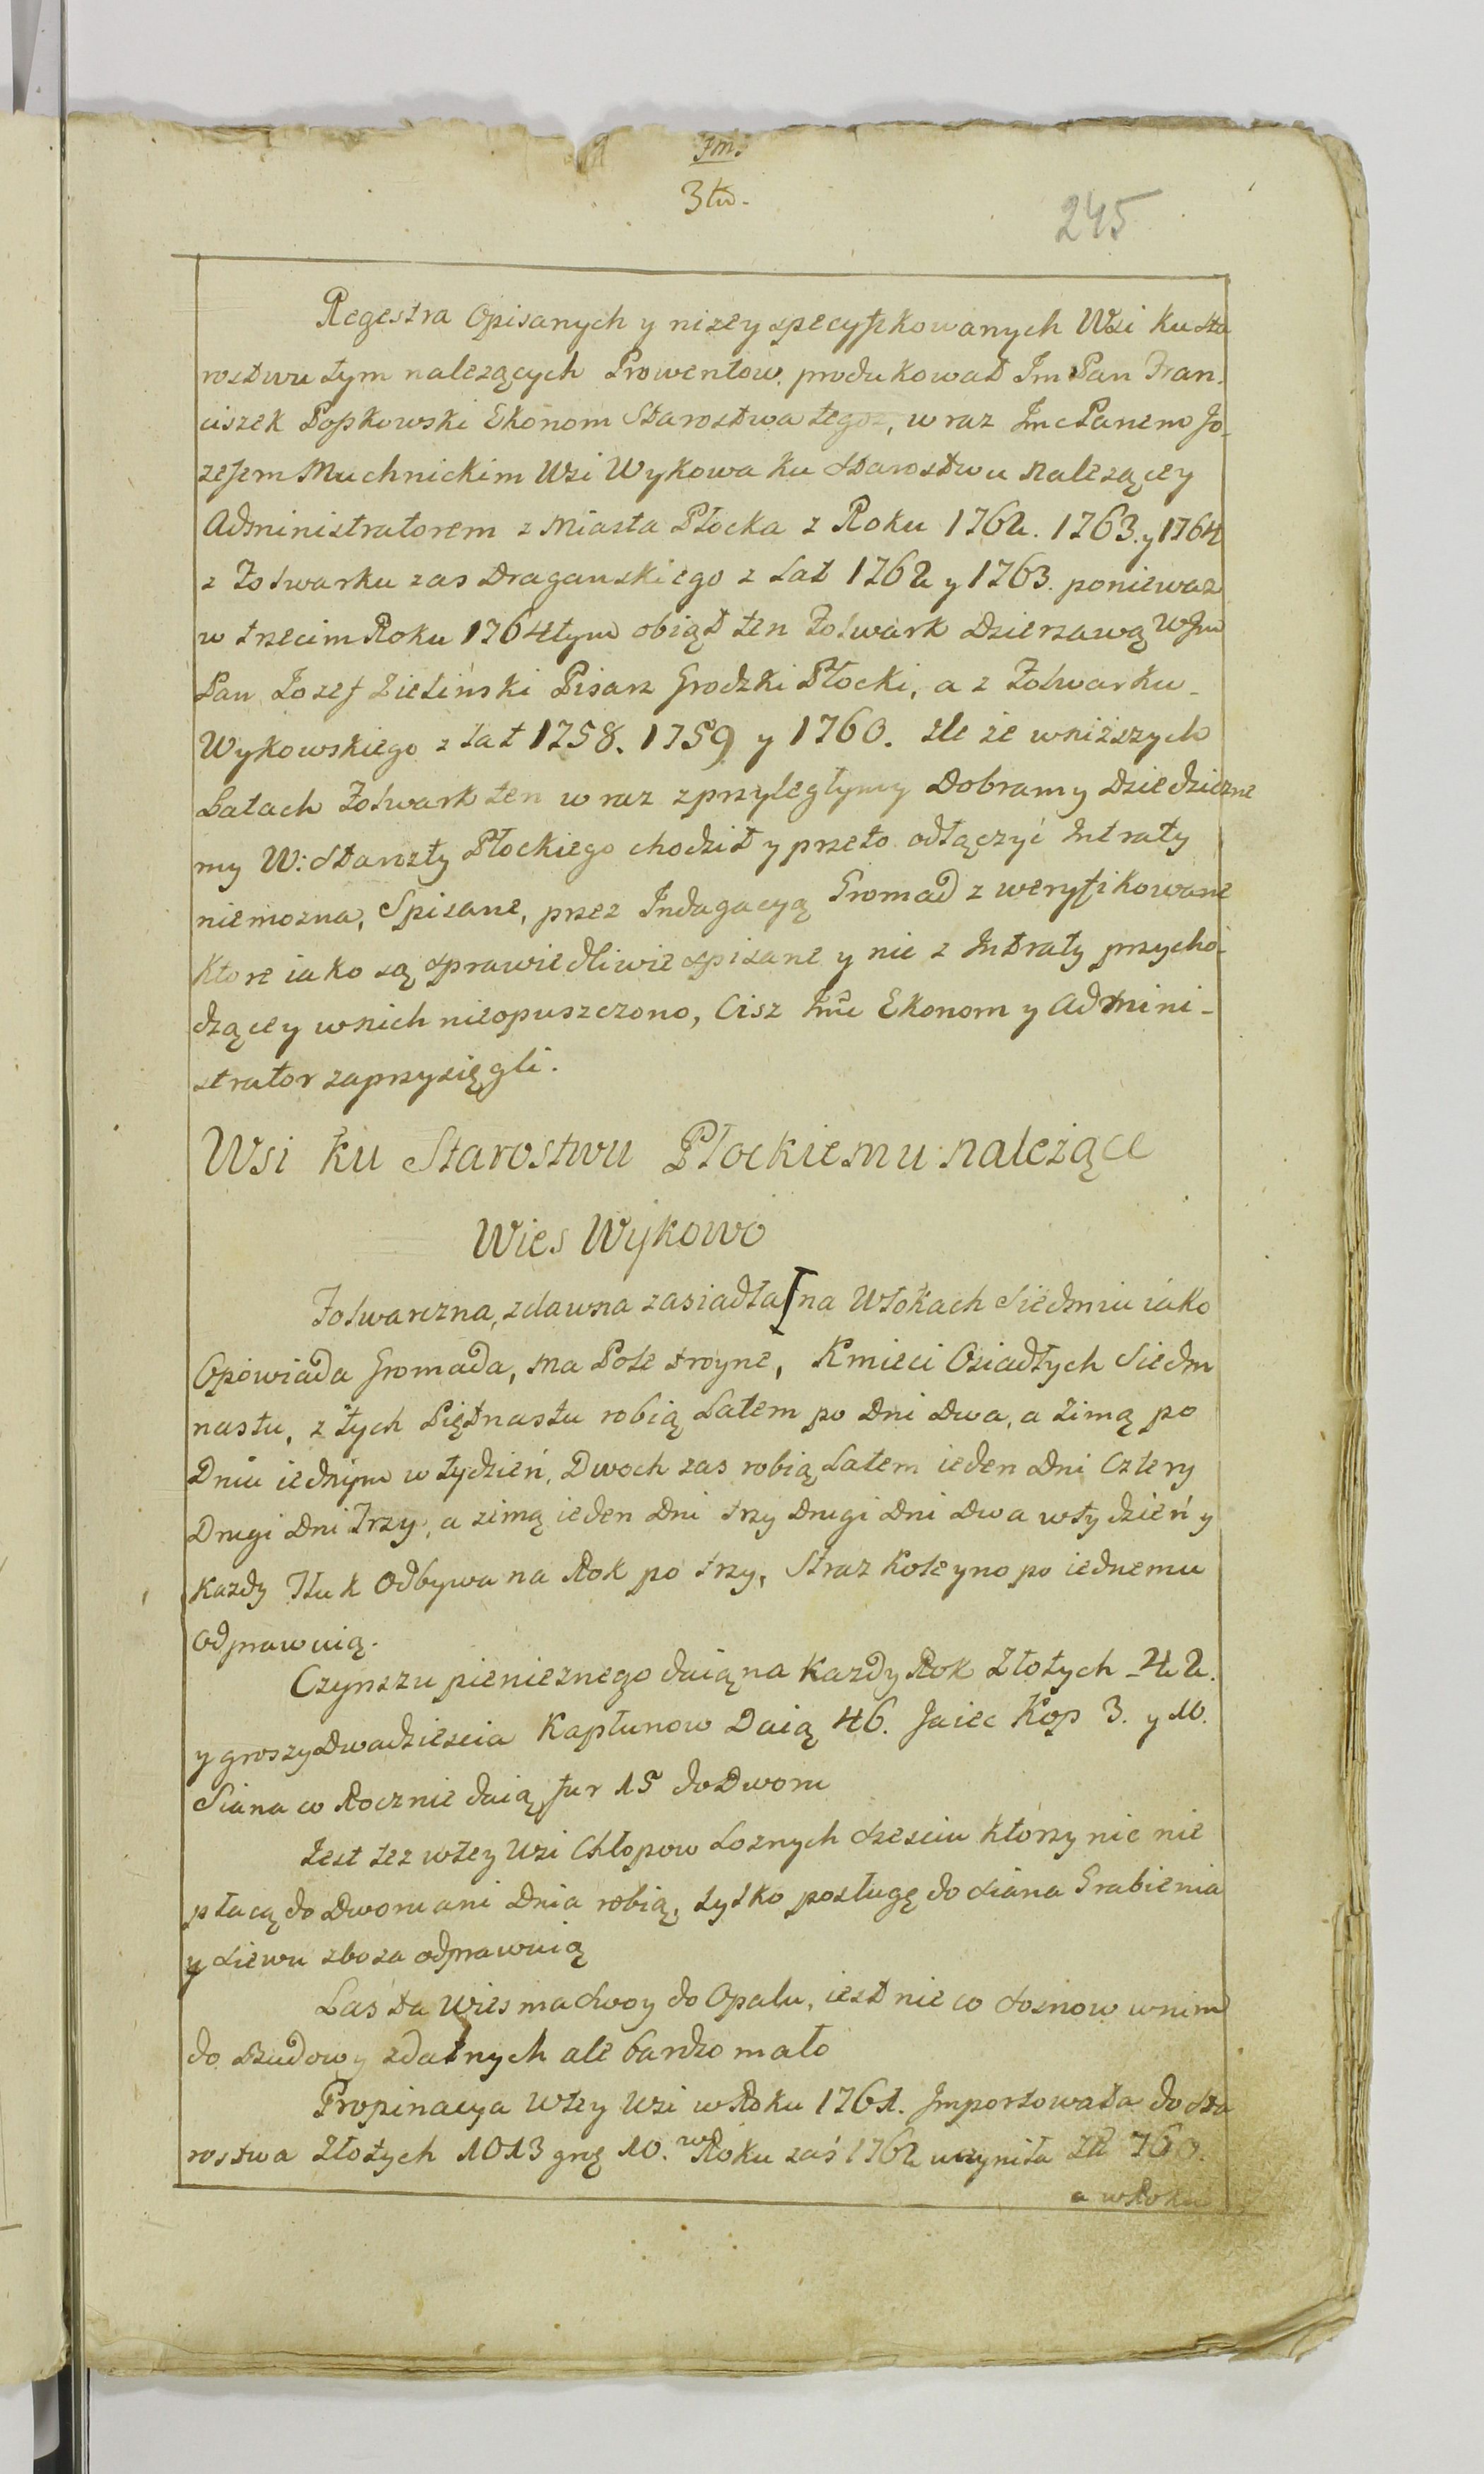 Fm.
3tw.
245
Regestra Opisanych y nizey specyfikowanych Wsi ku sta
rostwu tym nalezących Prowentow, produkował Jm Pan Fran,
ciszek Popkowski Ekonom Starostwa tegoz, wraz Jmc Panem Jo,
zefem Muchnickim Wsi Wykowa ku starostwu nalezącey
Administratorem z Miasta Płocka z Roku 1762. 1763. y 1764
z Folwarku zas Draganskiego z Lat 1762 y 1763. poniewaz
w trzecim Roku 1764tym obiął ten Folwark Dzierzawą WJm
Pan Jozef Zieliński Pisarz Grodzki Płocki, a z Folwarku_
Wykowskiego z Lat 1758. 1759 y 1760. ile że w niższych
Latach Folwark ten wraz z przyległymy Dobramy Dziedziczne
my W: Starosty Płockiego chodził y przeto odłączyć Intraty
niemozna, Spisane, przez Indagacyą Gromad zweryfikowane
Ktore iako są sprawiedliwie spisane y nic z Intraty przycho-
dzącey w nich nieopuszczono, Cisz Jmc Ekonom y Admini-
strator zaprzysięgli.
Wsi ku Starostwu Płockiemu należące
Wies Wykowo
Folwarczna, zdawna zasiadła [na Włokach Siedmiu iako
Opowiada Gromada, ma Pole troyne, Kmieci Osiadłych Siedm
nastu, z tych Piętnastu robią Latem po Dni Dwa, a Zimą po
Dniu iednym w tydzień, Dwoch zas robią Latem ieden Dni Cztery
Drugi Dni Trzy, a zimą ieden Dni trzy Drugi Dni Dwa w tydzień y
Kazdy Tłuk Odbywa na Rok po trzy, Straz koleyno po iednemu
Odprawuią.
Czynszu pienieznego daią na Kazdy Rok Złotych 42.
y groszy Dwadziescia Kapłunow Daią 46. Jaiec Kop 3. y 10.
Siana co Rocznie daią fur 15 do Dworu
Jest tez w tey Wsi Chłopow Loznych szesciu ktorzy nic nie
płacą do Dworu ani Dnia robią, tylko posługę do siana Grabienia
y siewu zboza odprawuią
Las ta wies ma swoy do Opalu, iest nie co sosnow w nim
do Budowy zdatnych ale bardzo mało
Propinacya w tey Wsi w Roku 1761. Importowała do sta
rostwa Złotych 1013 grosz 10. w Roku zaś 1762 uczyniła Zł 760.
a w Roku